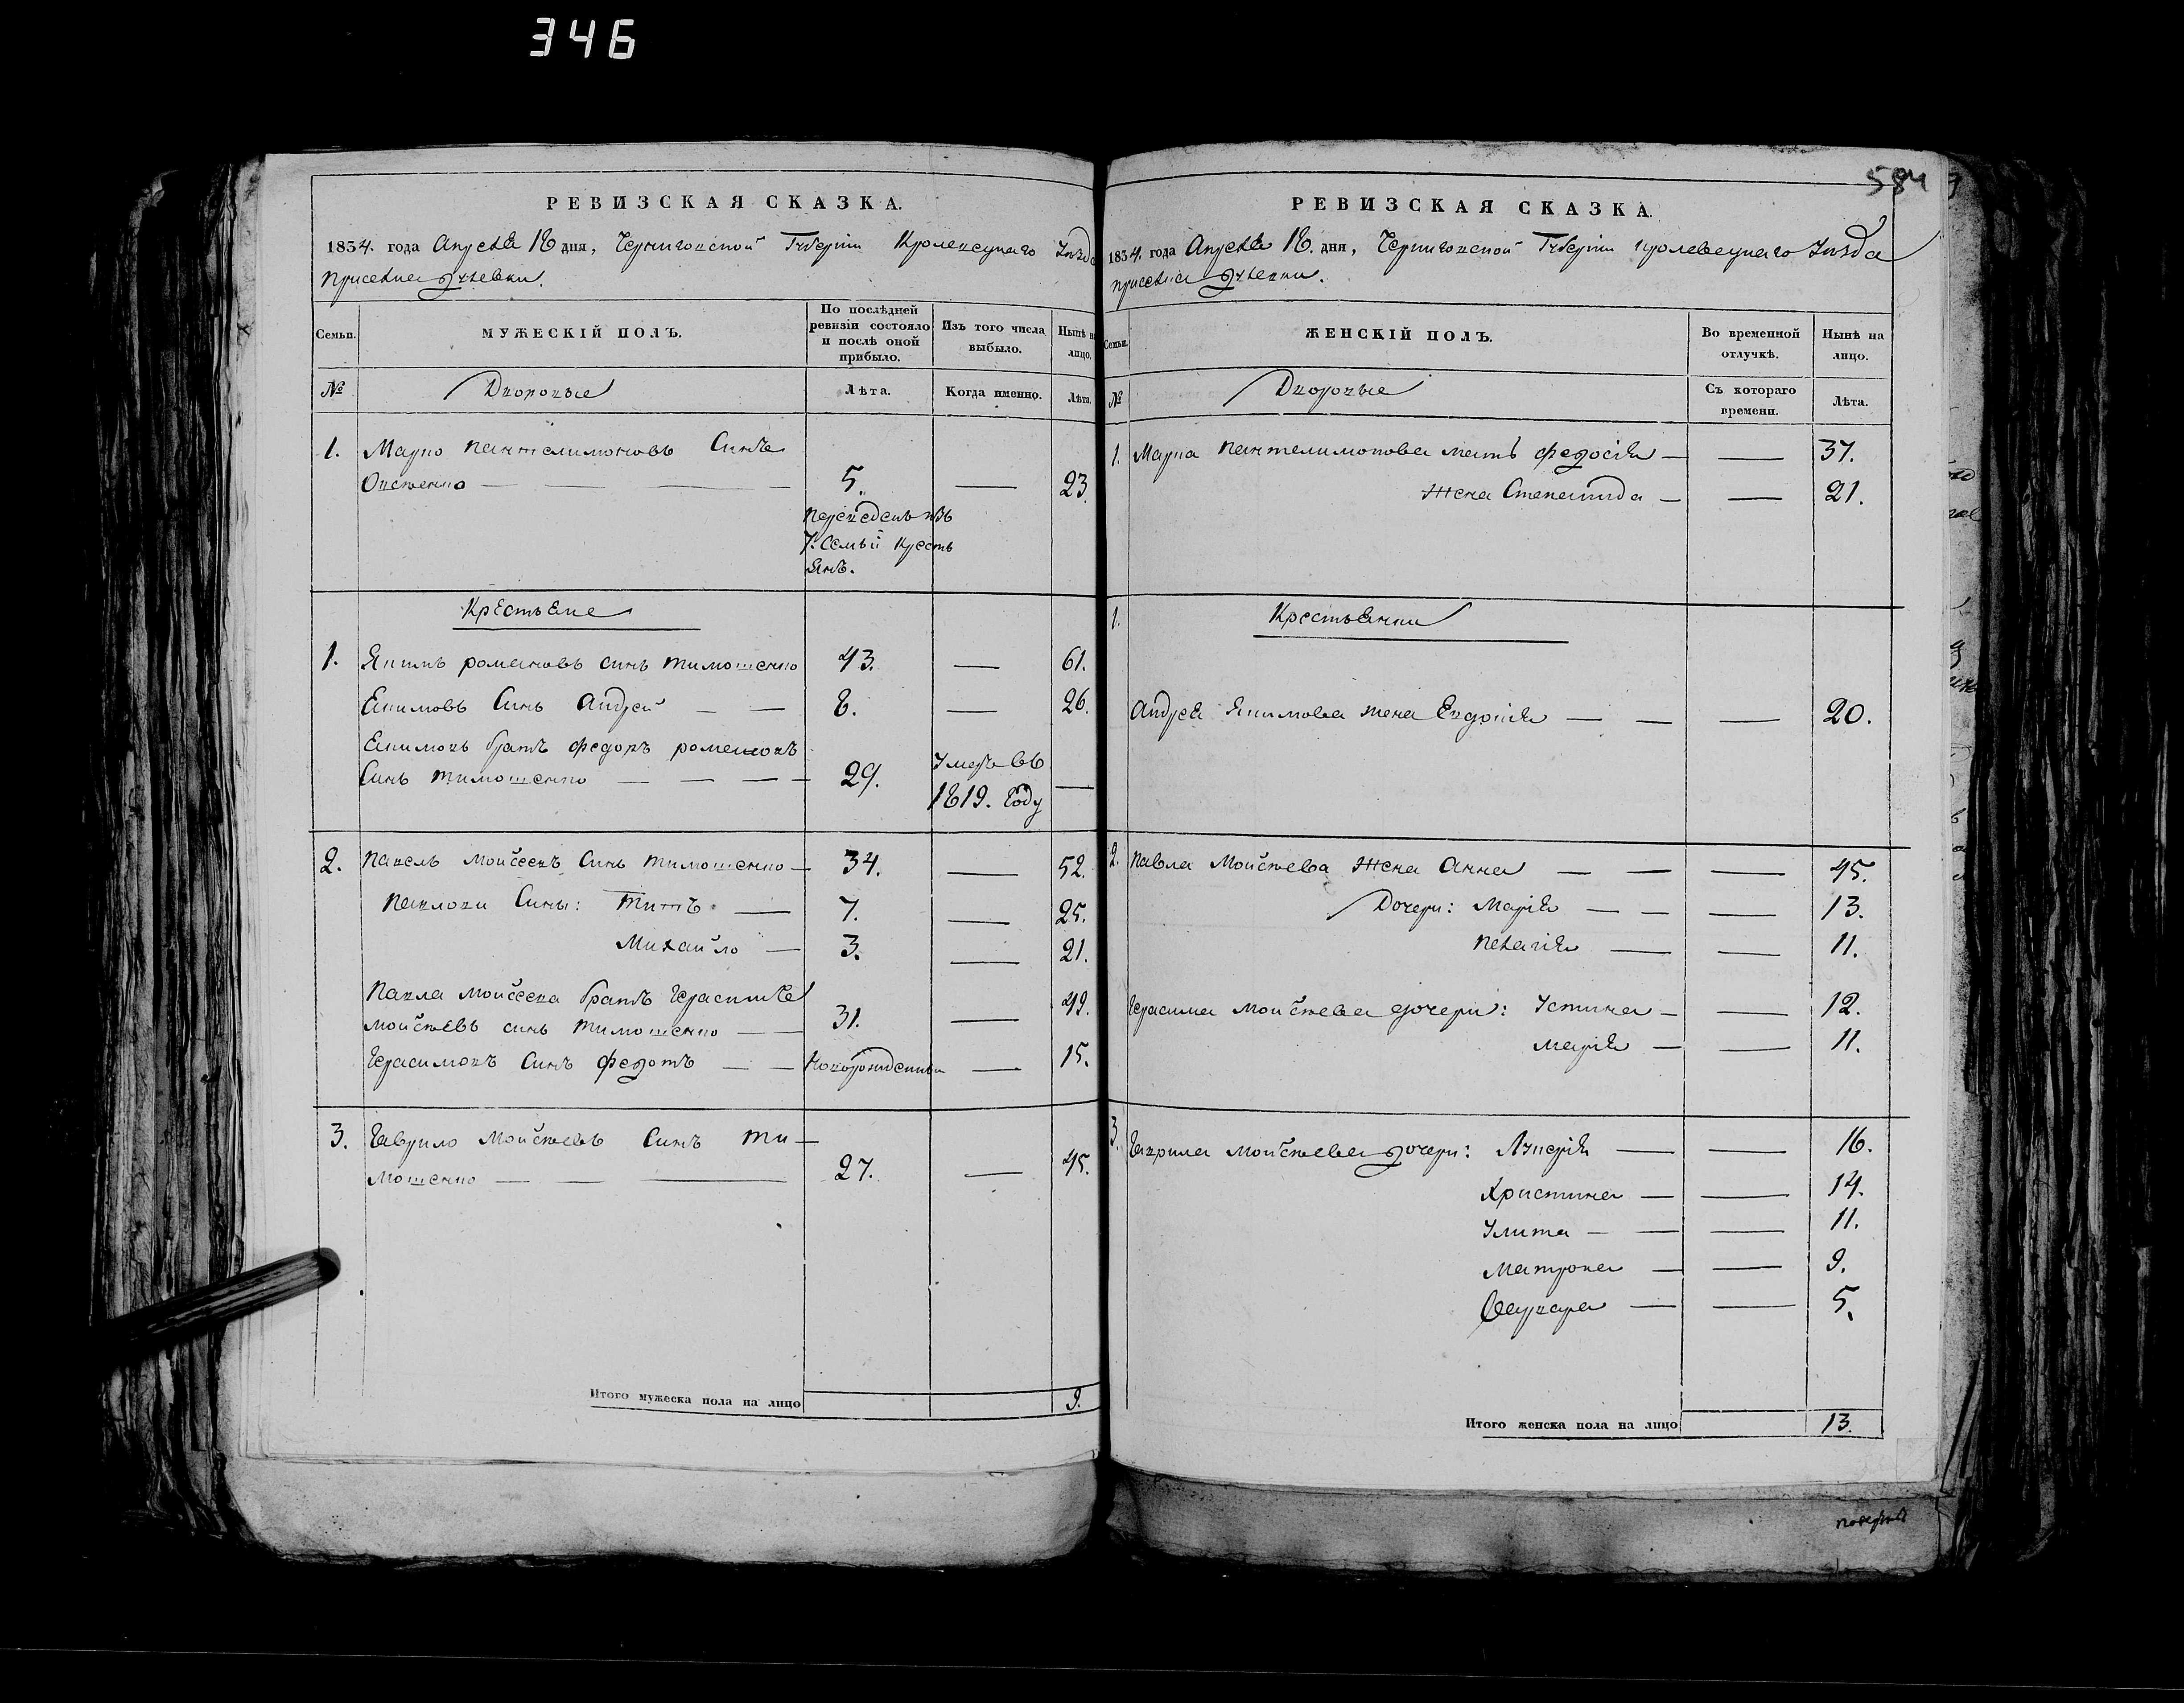 346
584
РЕВИЗСКАЯ СКАЗКА.
1834. года Апреля 18 дня, Черниговской Губерніи Кролевецкаго Уезда
приселка
Семьи.
МУЖЕСКІЙ ПОЛЪ.
По послѣдней ревизіи состояло и послѣ оной прибыло.
Изъ того числа выбыло.
Нынѣ на лицо.
№
Дворовые
Лѣта.
Когда именно.
Лѣта.
1. Марко Пантелимоновъ Сынъ
— — — 5. — 23.
Переведенъ изъ
7. Семьи Кресть
янъ.
Крестьяне
1. Якимъ романовъ синъ тимошенко 43. — 61.
Якимовъ Синъ Андрей — — 8. — 26.
Якимовъ братъ федоръ романовъ
Синъ тимошенко — — — 29. Умеръ въ 1819. Году —
2. Павелъ Мойсеевъ Синъ тимошенко — 34. — 52.
Павловы Сины: Титъ — 7. — 25.
Михайло — 3. — 21.
Павла Мойсеева братъ Герасимъ
мойсѣевъ синъ тимошенко — — 31. — 49.
Герасимовъ Синъ федотъ — — Новорожденный — 15.
3. Гаврило Мойсѣевъ Синъ Ти-
мошенко — — — 27. — 45.
Итого мужеска пола на лицо 9.
РЕВИЗСКАЯ СКАЗКА.
1834. года Апреля 18. дня, Черниговской Губерніи кролевецкаго Уезда
приселка
Семьи.
ЖЕНСКІЙ ПОЛЪ.
Во временной отлучкѣ.
Нынѣ на лицо.
№
Дворовые
Съ котораго времени.
Лѣта.
1. Марка Пантелимонова мать федосія — — 37.
Жена Степанида — — 21.
1. Крестьянки
Андрея Якимова жена Евдокія — — — 20.
2. Павла Мойсѣева Жена Анна — — — 45.
Дочери: Марія — — — 13.
Пелагія — — 11.
Герасима Мойсѣева дочери: Устина — — 12.
Марія — — 11.
3. Гаврила Мойсѣева дочери: Лукерія — — 16.
Христина — — 14.
Улита — — — 11.
Матрона — — 9.
Варвара — — 5.
Итого женска пола на лицо 13.